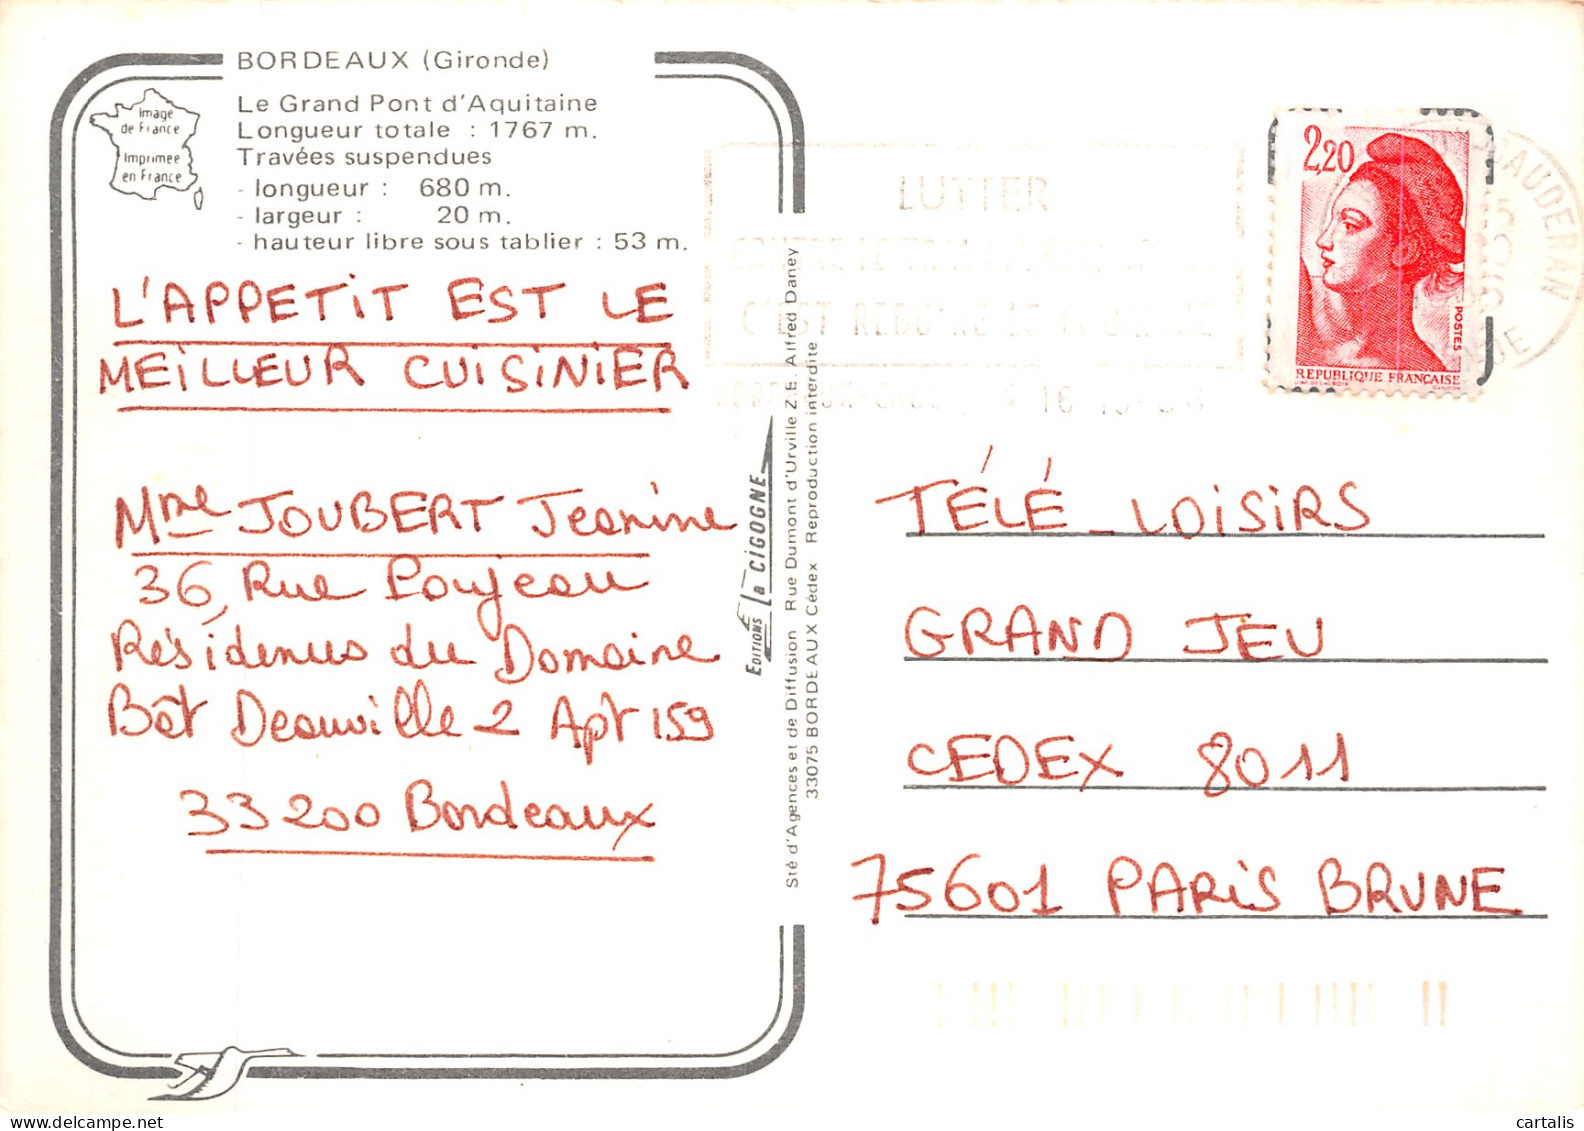 BORDEAUX (Gironde)
Le Grand Pont d'Aquitaine
Longueur totale : 1767 m.
Travées suspendues
- longueur : 680 m.
- largeur : 20 m.
- hauteur libre sous tablier : 53 m.
Image
de France
Imprimée
en France
L'APPETIT EST LE
MEILLEUR CUISINIER
Mme JOUBERT Jeanine
36, Rue Poujeau
Résidences du Domaine
Bât Deauville 2 Apt 159
33200 Bordeaux
EDITIONS La CIGOGNE
Sté d'Agences et de Diffusion Rue Dumont d'Urville Z.E. Alfred Daney
33075 BORDEAUX Cédex Reproduction interdite
LUTTER
C'EST REDUIRE LE
CAUDERAN
2,20
POSTES
REPUBLIQUE FRANÇAISE
TÉLÉ_LOISIRS
GRAND JEU
CEDEX 8011
75601 PARIS BRUNE
cartalis
www.delcampe.net